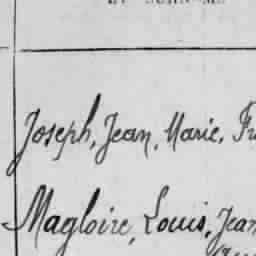 Joseph, Jean, Marie, Fr
Magloire, Louis, Jean